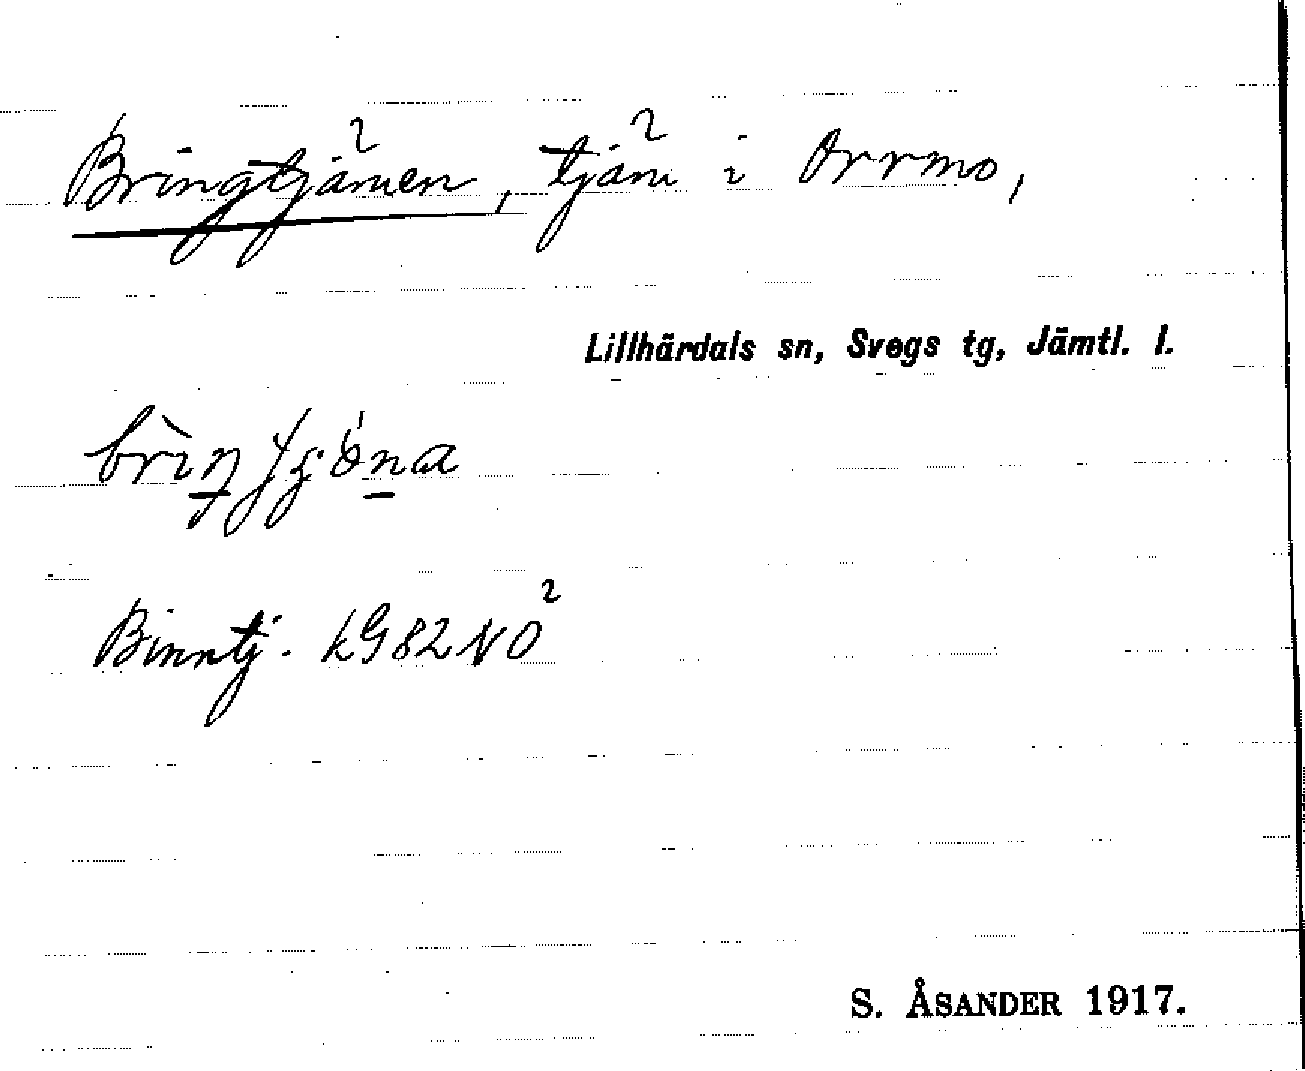 Bringtjärnen, tjärn i Orrmo,
Lillhärdals sn, Svegs tg, Jämtl. l.
Binntj. kG82NO²
S. ÅSANDER 1917.